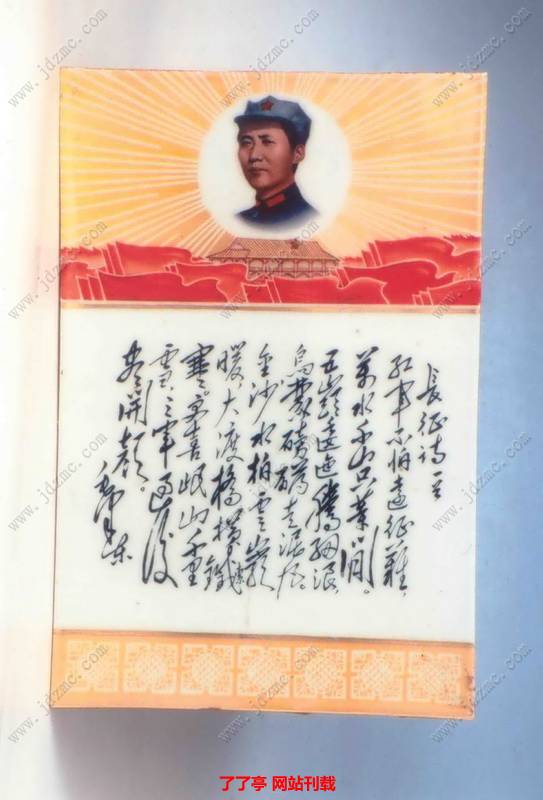 長征詩一首
紅軍不怕遠征難，
萬水千山只等閒。
五嶺逶迤騰細浪，
烏蒙磅礴走泥丸。
金沙水拍雲崖
暖，大渡橋橫鐵索
寒。更喜岷山千里
雪，三軍過後
盡開顏。
毛澤東
www.jdzmc.com
了了亭 网站刊载